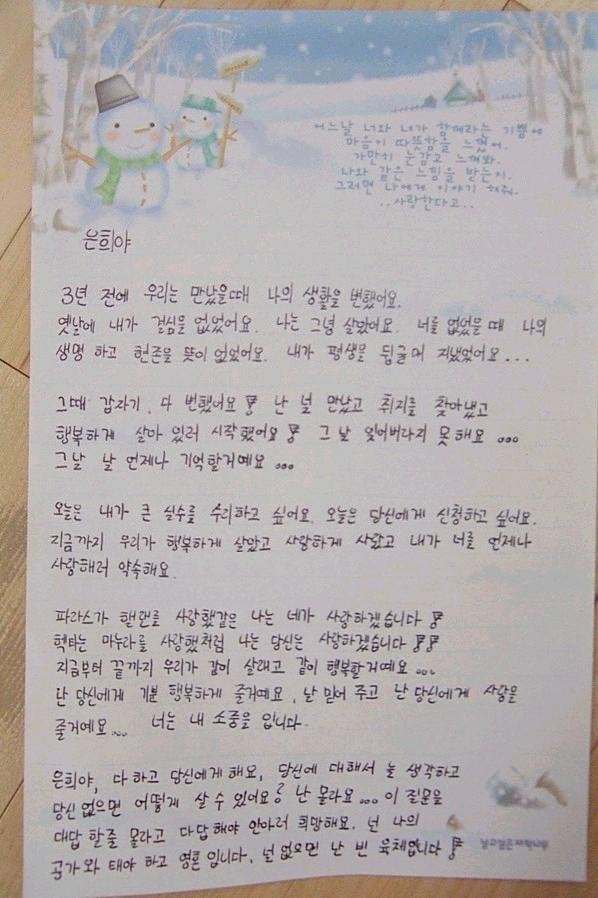 어느날 너와 내가 함께라는 기쁨에
마음이 따뜻함을 느꼈어.
가만히 눈감고 느껴봐.
나와 같은 느낌을 받는지.
그러면 나에게 이야기 해줘.
..사랑한다고..
은희야
3년 전에 우리는 만났을때 나의 생활을 변했어요.
옛날에 내가 결심을 없었어요. 나는 그냥 살았어요. 너를 없었을 때 나의
생명 하고 현존을 뜻이 없었어요. 내가 평생을 뒹글며 지냈었어요...
그때 갑자기, 다 변했어요! 난 널 만났고 취지를 찾아냈고
행복하게 살아 있러 시작했어요! 그 날 잊어버라지 못 해요...
그날 날 언제나 기억할거예요...
오늘은 내가 큰 실수를 수리하고 싶어요. 오늘은 당신에게 신청하고 싶어요.
지금까지 우리가 행복하게 살았고 사랑하게 사랐고 내가 너를 언제나
사랑해러 약속해요.
파라스가 핼랜를 사랑했같은 나는 네가 사랑하겠습니다!
헥타는 마누라를 사랑했처럼 나는 당신은 사랑하겠습니다!!
지금부터 끝까지 우리가 같이 살래고 같이 행복할거예요...
난 당신에게 기분 행복하게 줄거예요, 날 믿어 주고 난 당신에게 사랑을
줄거예요... 너는 내 소중을 입니다.
은희야, 다 하고 당신에게 해요, 당신에 대해서 늘 생각하고
당신 없으면 어떻게 살 수 있어요? 난 몰라요... 이 질문을
대답 할줄 몰라고 다답해야 안아러 희망해요. 넌 나의
공기와 태야 하고 영혼 입니다, 널 없으면 난 빈 육체입니다!